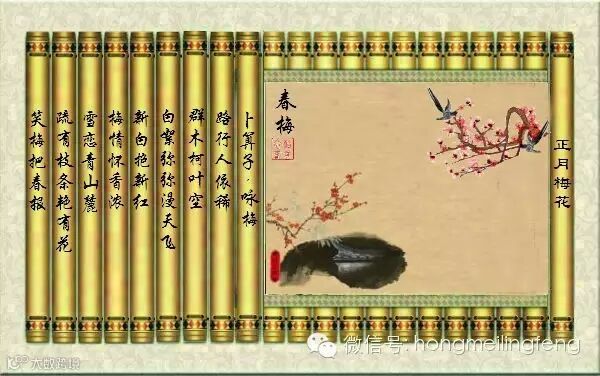 正月梅花
春梅
卜算子·咏梅
路行人像稀
群木柯叶空
白絮弥弥漫天飞
新白艳新红
梅情怀香浓
雪恋青山麓
疏有枝条艳有花
笑梅把春报
微信号: hongmeilingfeng
大数跨境